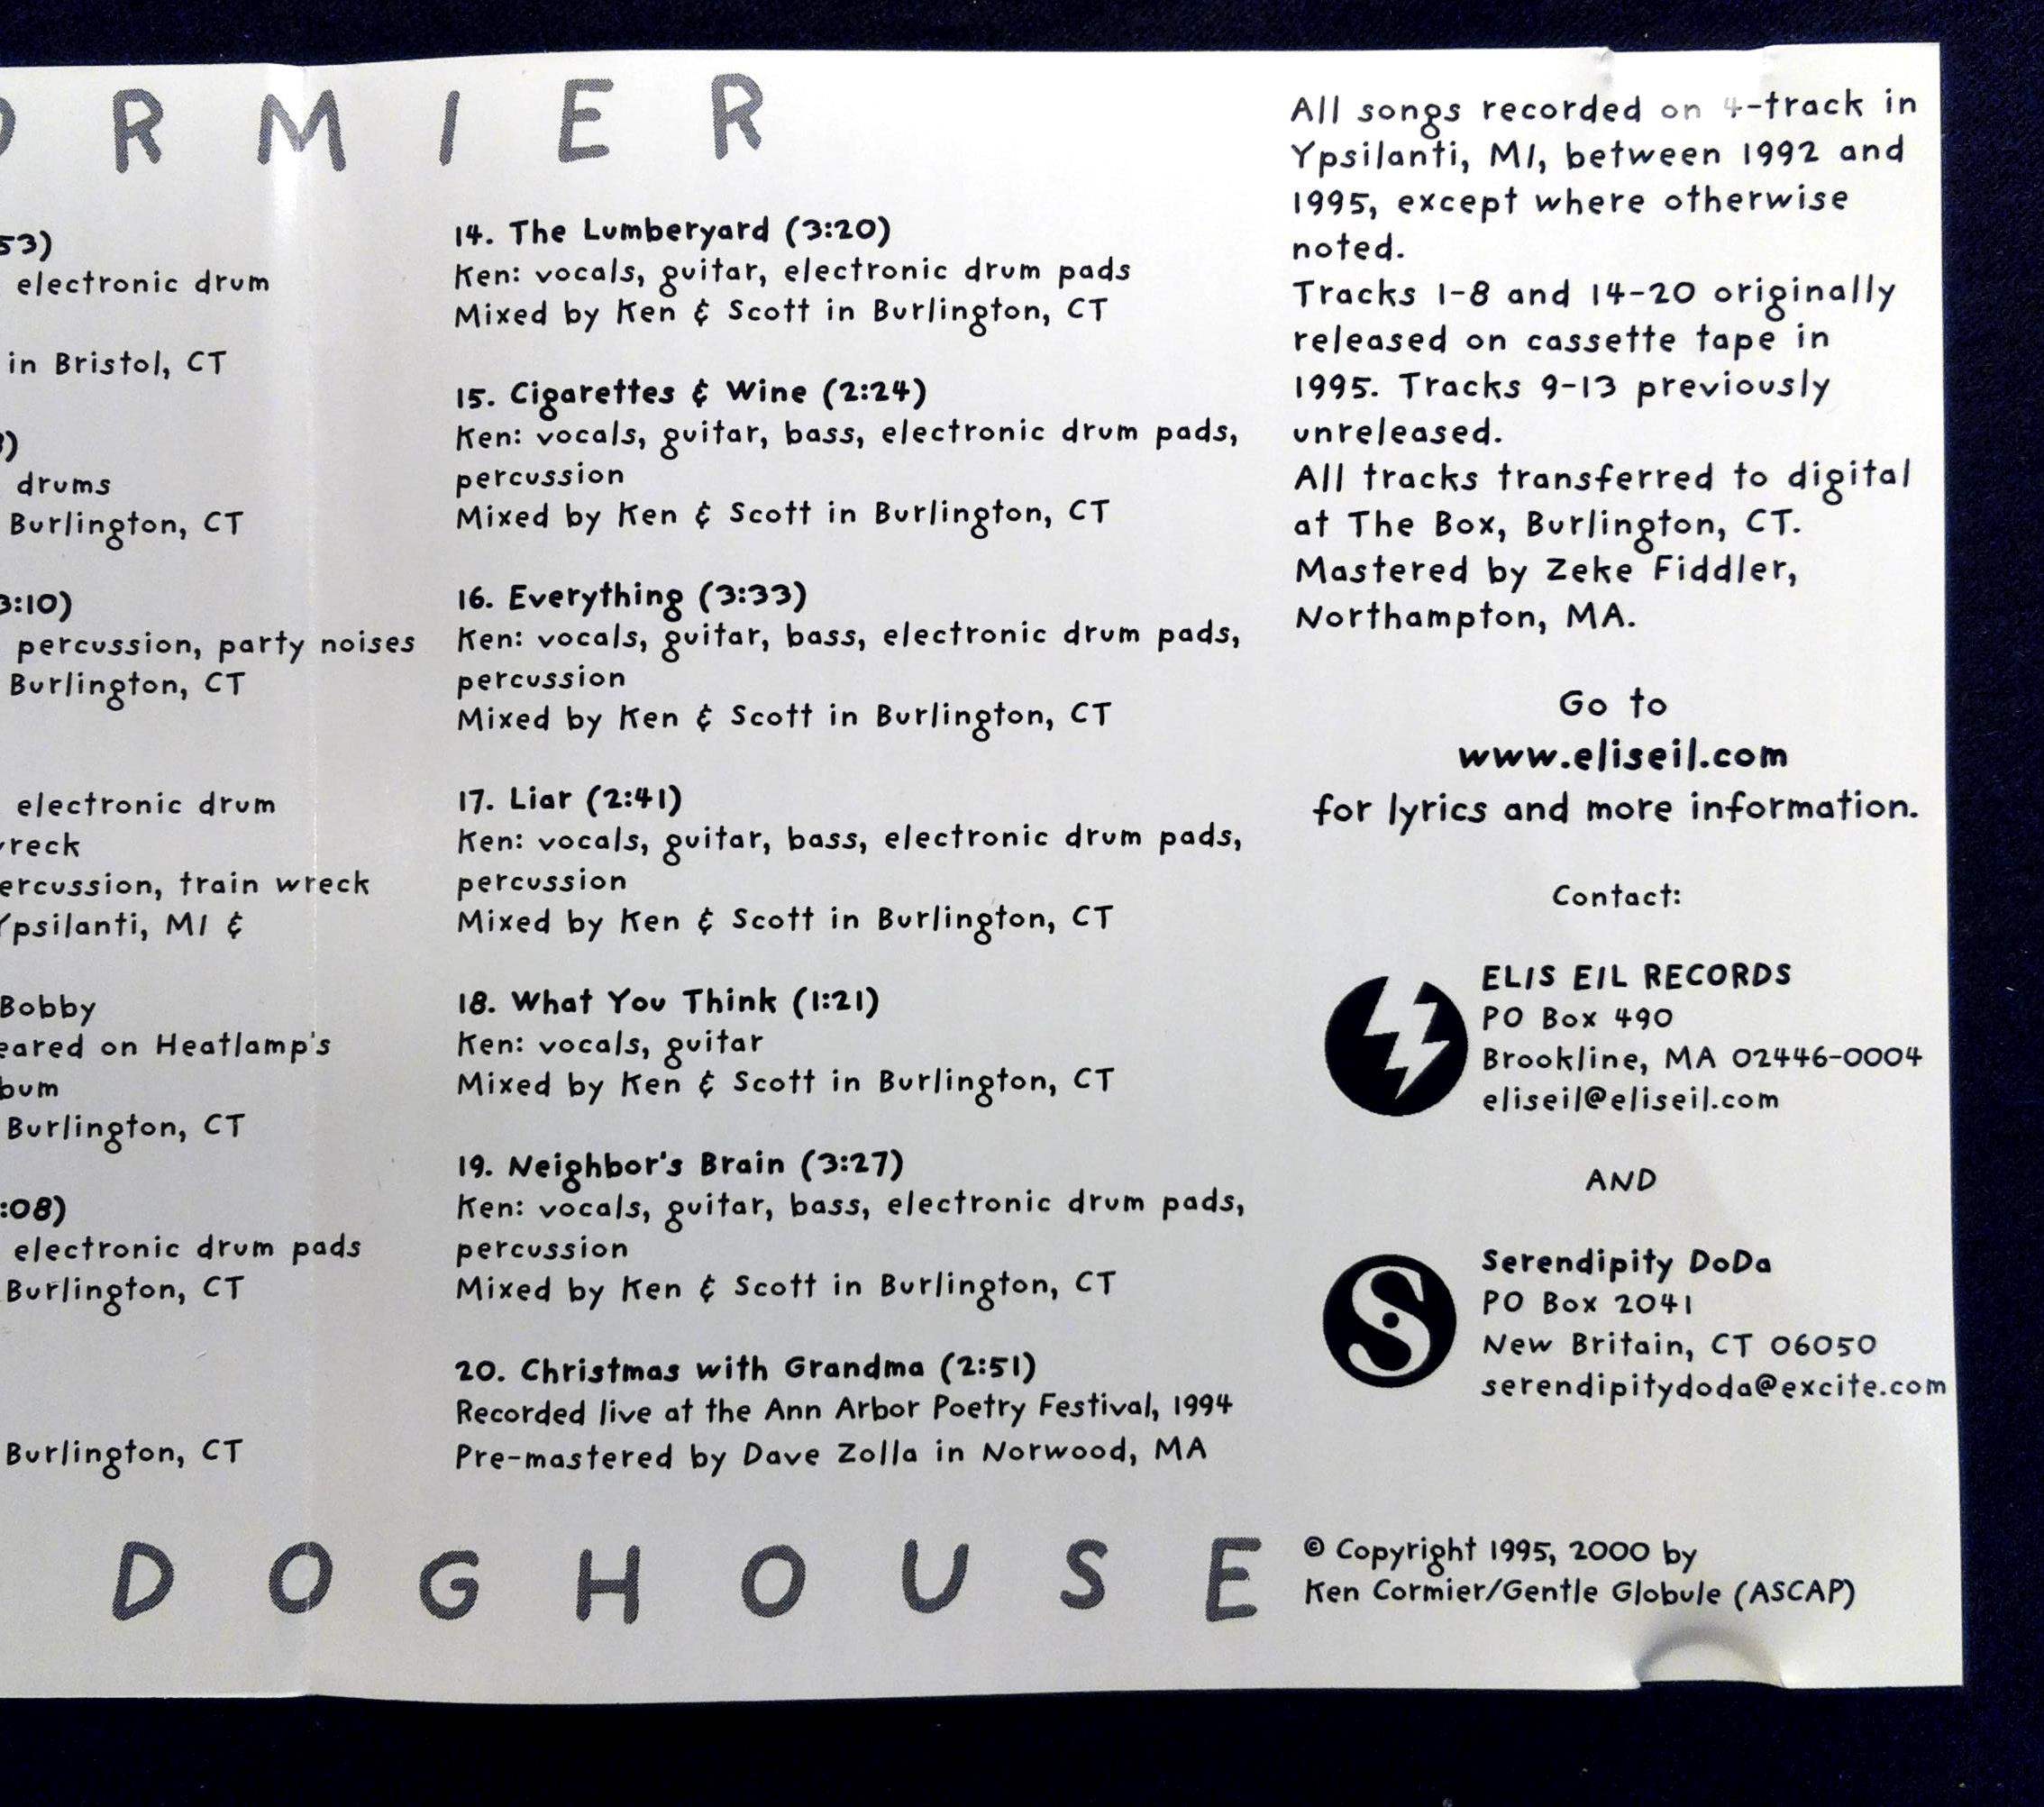 R M I E R
53)
electronic drum
in Bristol, CT
drums
Burlington, CT
3:10)
percussion, party noises
Burlington, CT
electronic drum
reck
ercussion, train wreck
Ypsilanti, MI &
Bobby
eared on Heatlamp's
bum
Burlington, CT
:08)
electronic drum pads
Burlington, CT
Burlington, CT
14. The Lumberyard (3:20)
Ken: vocals, guitar, electronic drum pads
Mixed by Ken & Scott in Burlington, CT
15. Cigarettes & Wine (2:24)
Ken: vocals, guitar, bass, electronic drum pads,
percussion
Mixed by Ken & Scott in Burlington, CT
16. Everything (3:33)
Ken: vocals, guitar, bass, electronic drum pads,
percussion
Mixed by Ken & Scott in Burlington, CT
17. Liar (2:41)
Ken: vocals, guitar, bass, electronic drum pads,
percussion
Mixed by Ken & Scott in Burlington, CT
18. What You Think (1:21)
Ken: vocals, guitar
Mixed by Ken & Scott in Burlington, CT
19. Neighbor's Brain (3:27)
Ken: vocals, guitar, bass, electronic drum pads,
percussion
Mixed by Ken & Scott in Burlington, CT
20. Christmas with Grandma (2:51)
Recorded live at the Ann Arbor Poetry Festival, 1994
Pre-mastered by Dave Zolla in Norwood, MA
All songs recorded on 4-track in
Ypsilanti, MI, between 1992 and
1995, except where otherwise
noted.
Tracks 1-8 and 14-20 originally
released on cassette tape in
1995. Tracks 9-13 previously
unreleased.
All tracks transferred to digital
at The Box, Burlington, CT.
Mastered by Zeke Fiddler,
Northampton, MA.
Go to
www.eliseil.com
for lyrics and more information.
Contact:
ELIS EIL RECORDS
PO Box 490
Brookline, MA 02446-0004
eliseil@eliseil.com
AND
S
Serendipity DoDa
PO Box 2041
New Britain, CT 06050
serendipitydoda@excite.com
D O G H O U S E
© Copyright 1995, 2000 by
Ken Cormier/Gentle Globule (ASCAP)